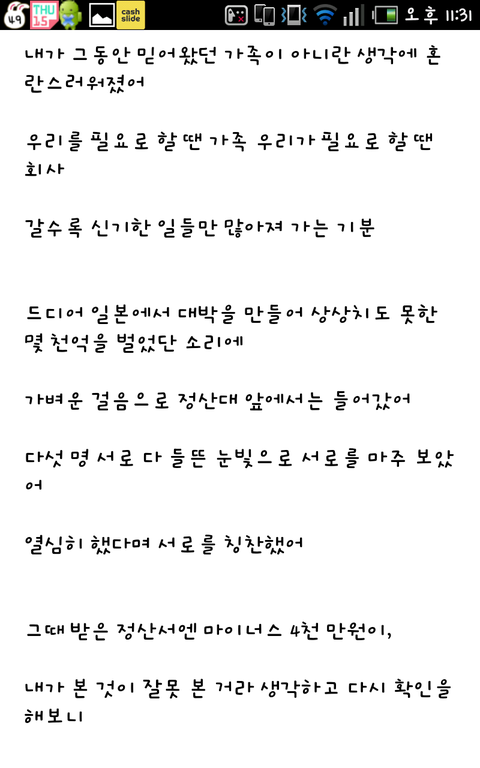 49
THU
15
cash
slide
오후 11:31
내가 그동안 믿어왔던 가족이 아니란 생각에 혼
란스러워졌어
우리를 필요로 할 땐 가족 우리가 필요로 할 땐
회사
갈수록 신기한 일들만 많아져 가는 기분
드디어 일본에서 대박을 만들어 상상치도 못한
몇 천억을 벌었단 소리에
가벼운 걸음으로 정산대 앞에서는 들어갔어
다섯 명 서로 다 들뜬 눈빛으로 서로를 마주 보았
어
열심히 했다며 서로를 칭찬했어
그때 받은 정산서엔 마이너스 4천 만원이,
내가 본 것이 잘못 본 거라 생각하고 다시 확인을
해보니